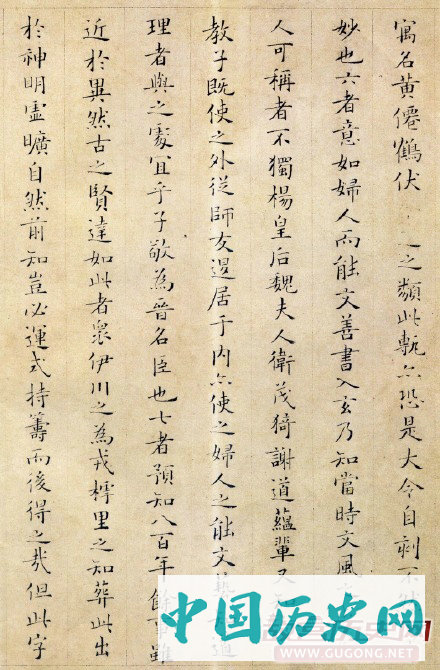 寓名黃僊鶴伏 之類此甎亦恐是大令自刻不
妙也六者意如婦人而能文善書入玄乃知當時文風
人可稱者不獨楊皇后魏夫人衛茂猗謝道蘊輩又
教子既使之外從師友退居于内亦使之婦人之能文
理者與之處宜乎子敬為晉名臣也七者預知八百年餘事雖
近於異然古之賢達如此者衆伊川之為戎樗里之知葬此出
於神明虛曠自然前知豈必運式持籌而後得之哉但此字
中国历史网
WWW.GUGONG.NET